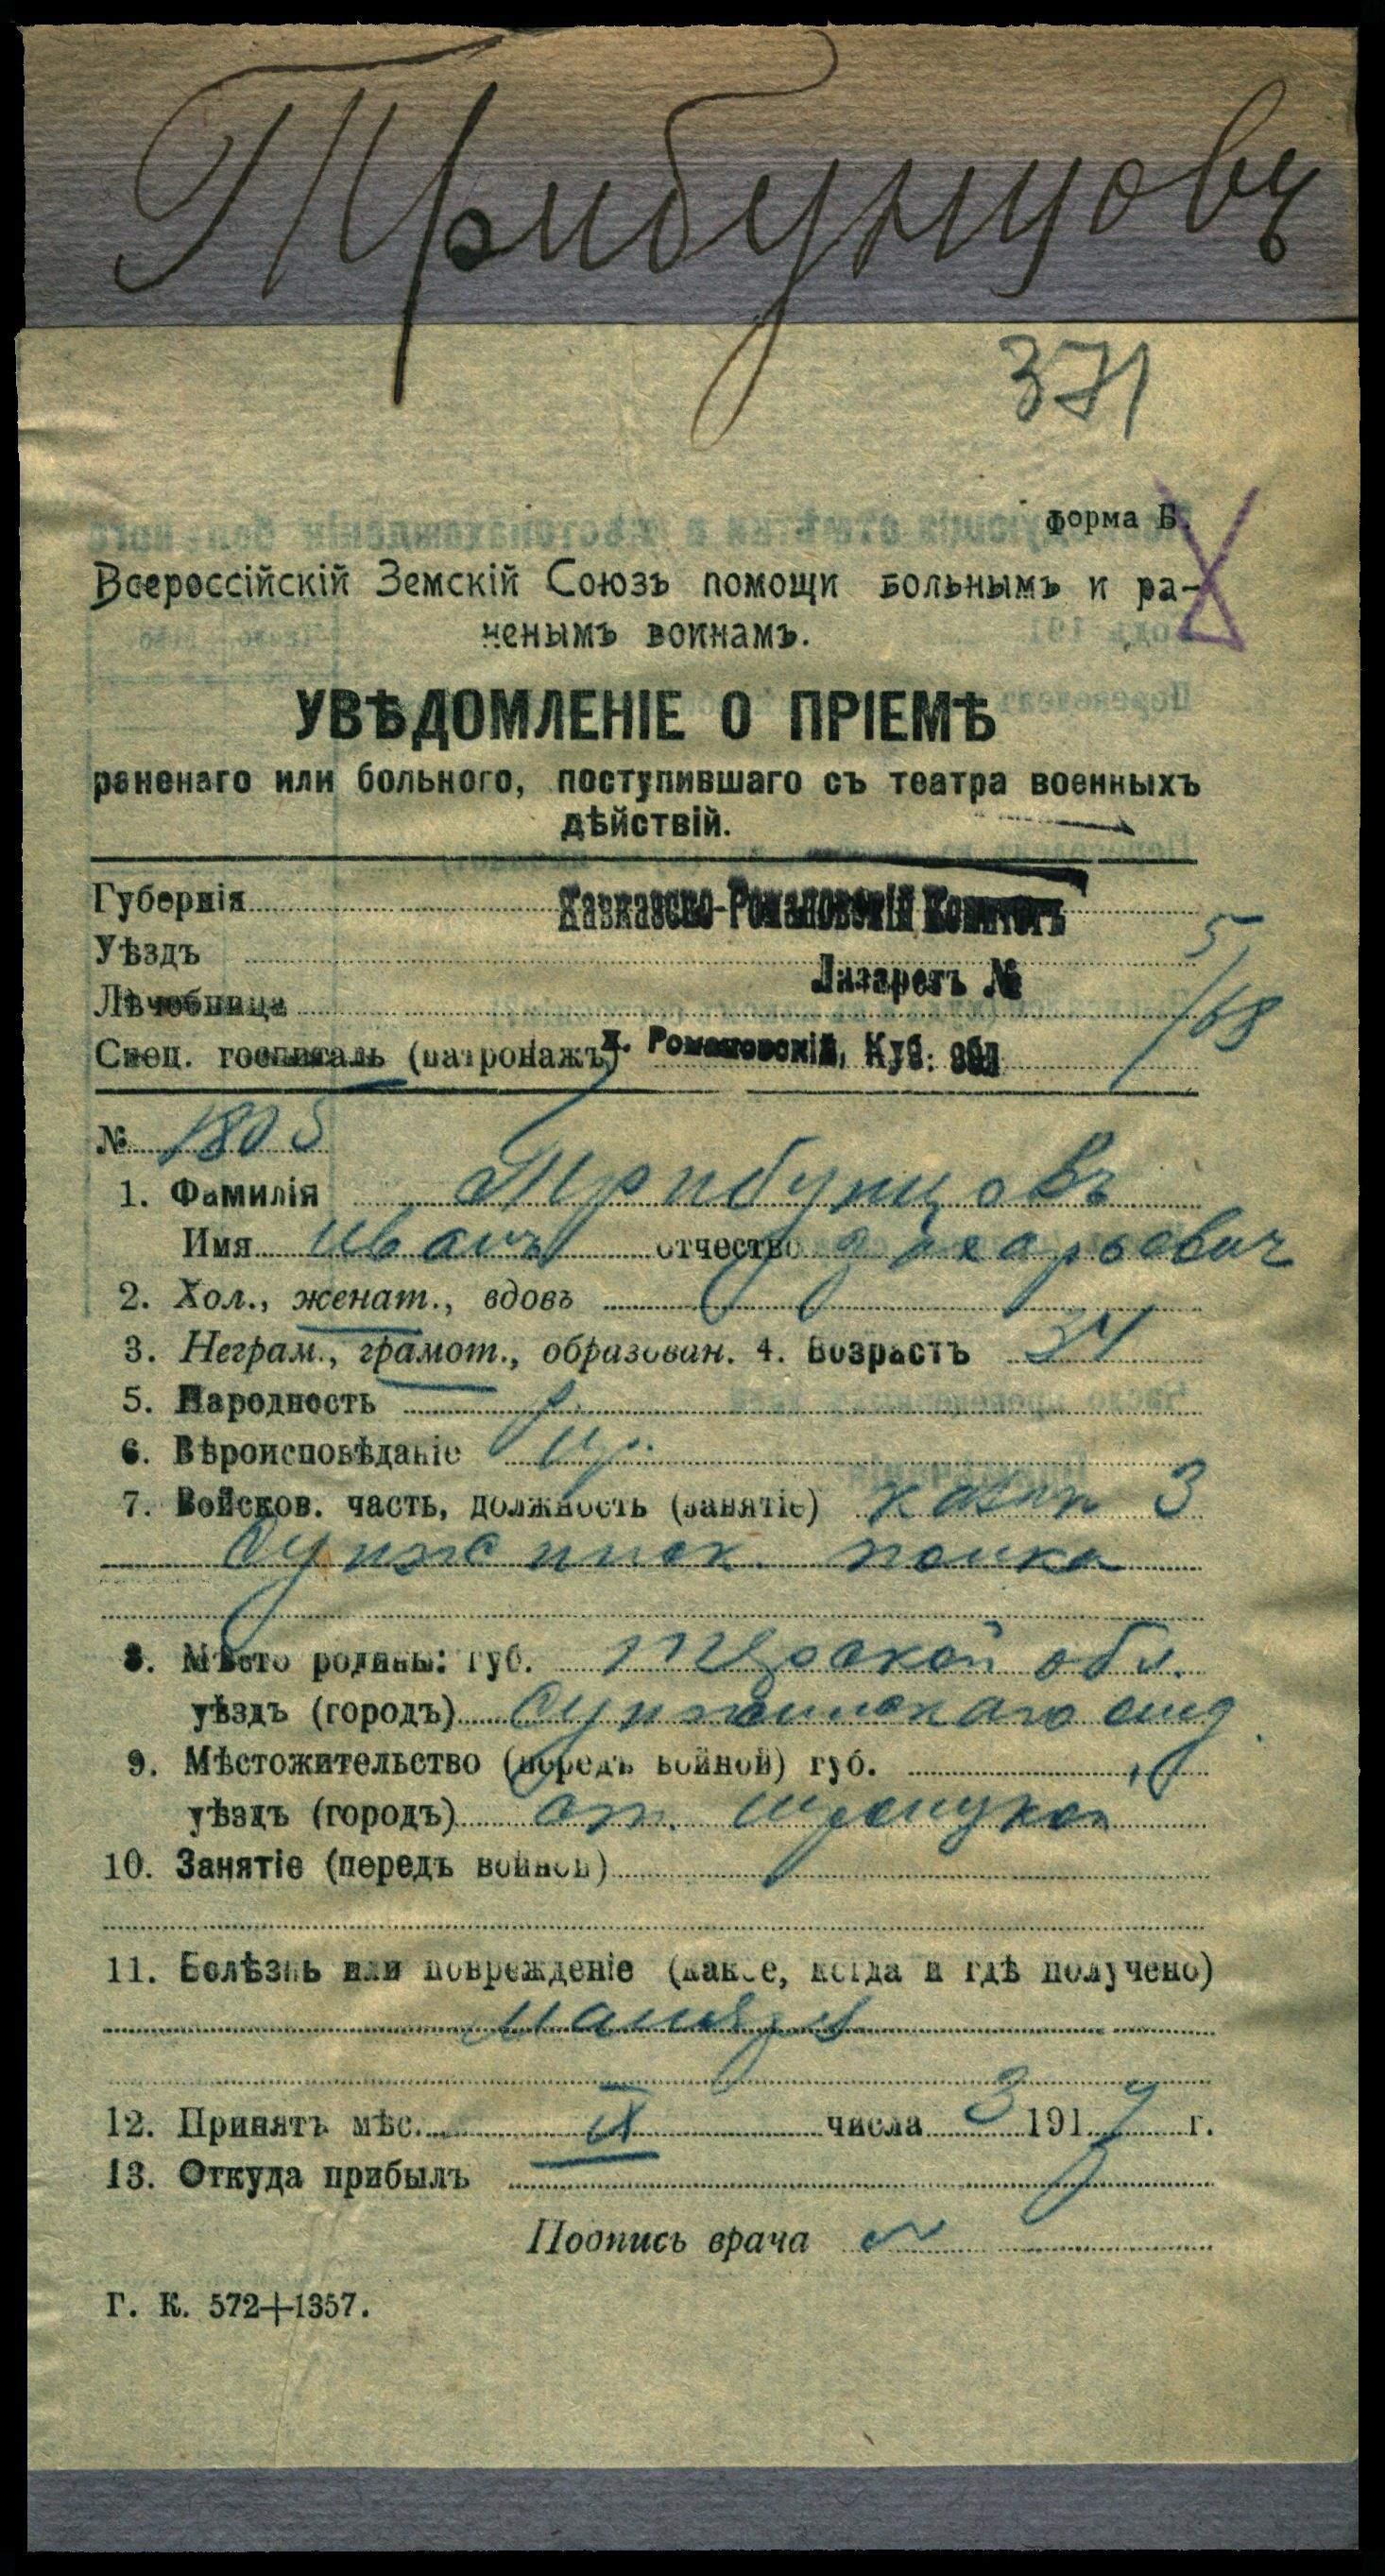 Трибунцовъ
371
форма Б.
Всероссійскій Земскій Союзъ помощи больнымъ и ра-
ненымъ воинамъ.
УВѢДОМЛЕНІЕ О ПРІЕМѢ
раненаго или больного, поступившаго съ театра военныхъ
дѣйствій.
Губернія Кавказско-Романовскій Комитетъ
Уѣздъ
Лазаретъ № 5/68
Лѣчебница
Спец. госпиталь (патронажъ) х. Романовскій, Куб. обл
№ 1805
1. Фамилія Трибунцовъ
Имя Иванъ отчество
2. Хол., женат., вдовъ
3. Неграм., грамот., образован. 4. Возрастъ 34
5. Народность р.
6. Вѣроисповѣданіе пр.
7. Войсков. часть, должность (занятіе) казак 3
Сунженск. полка
8. Мѣсто родины: губ. Терской обл.
уѣздъ (городъ) Сунженскаго отд.
9. Мѣстожительство (передъ войной) губ.
уѣздъ (городъ) ст. Троицкой
10. Занятіе (передъ войной)
11. Болѣзнь или поврежденіе (какое, когда и гдѣ получено)
маляріи
12. Принятъ мѣс. IX числа 3 1917 г.
13. Откуда прибылъ
Подпись врача
Г. К. 572+1357.